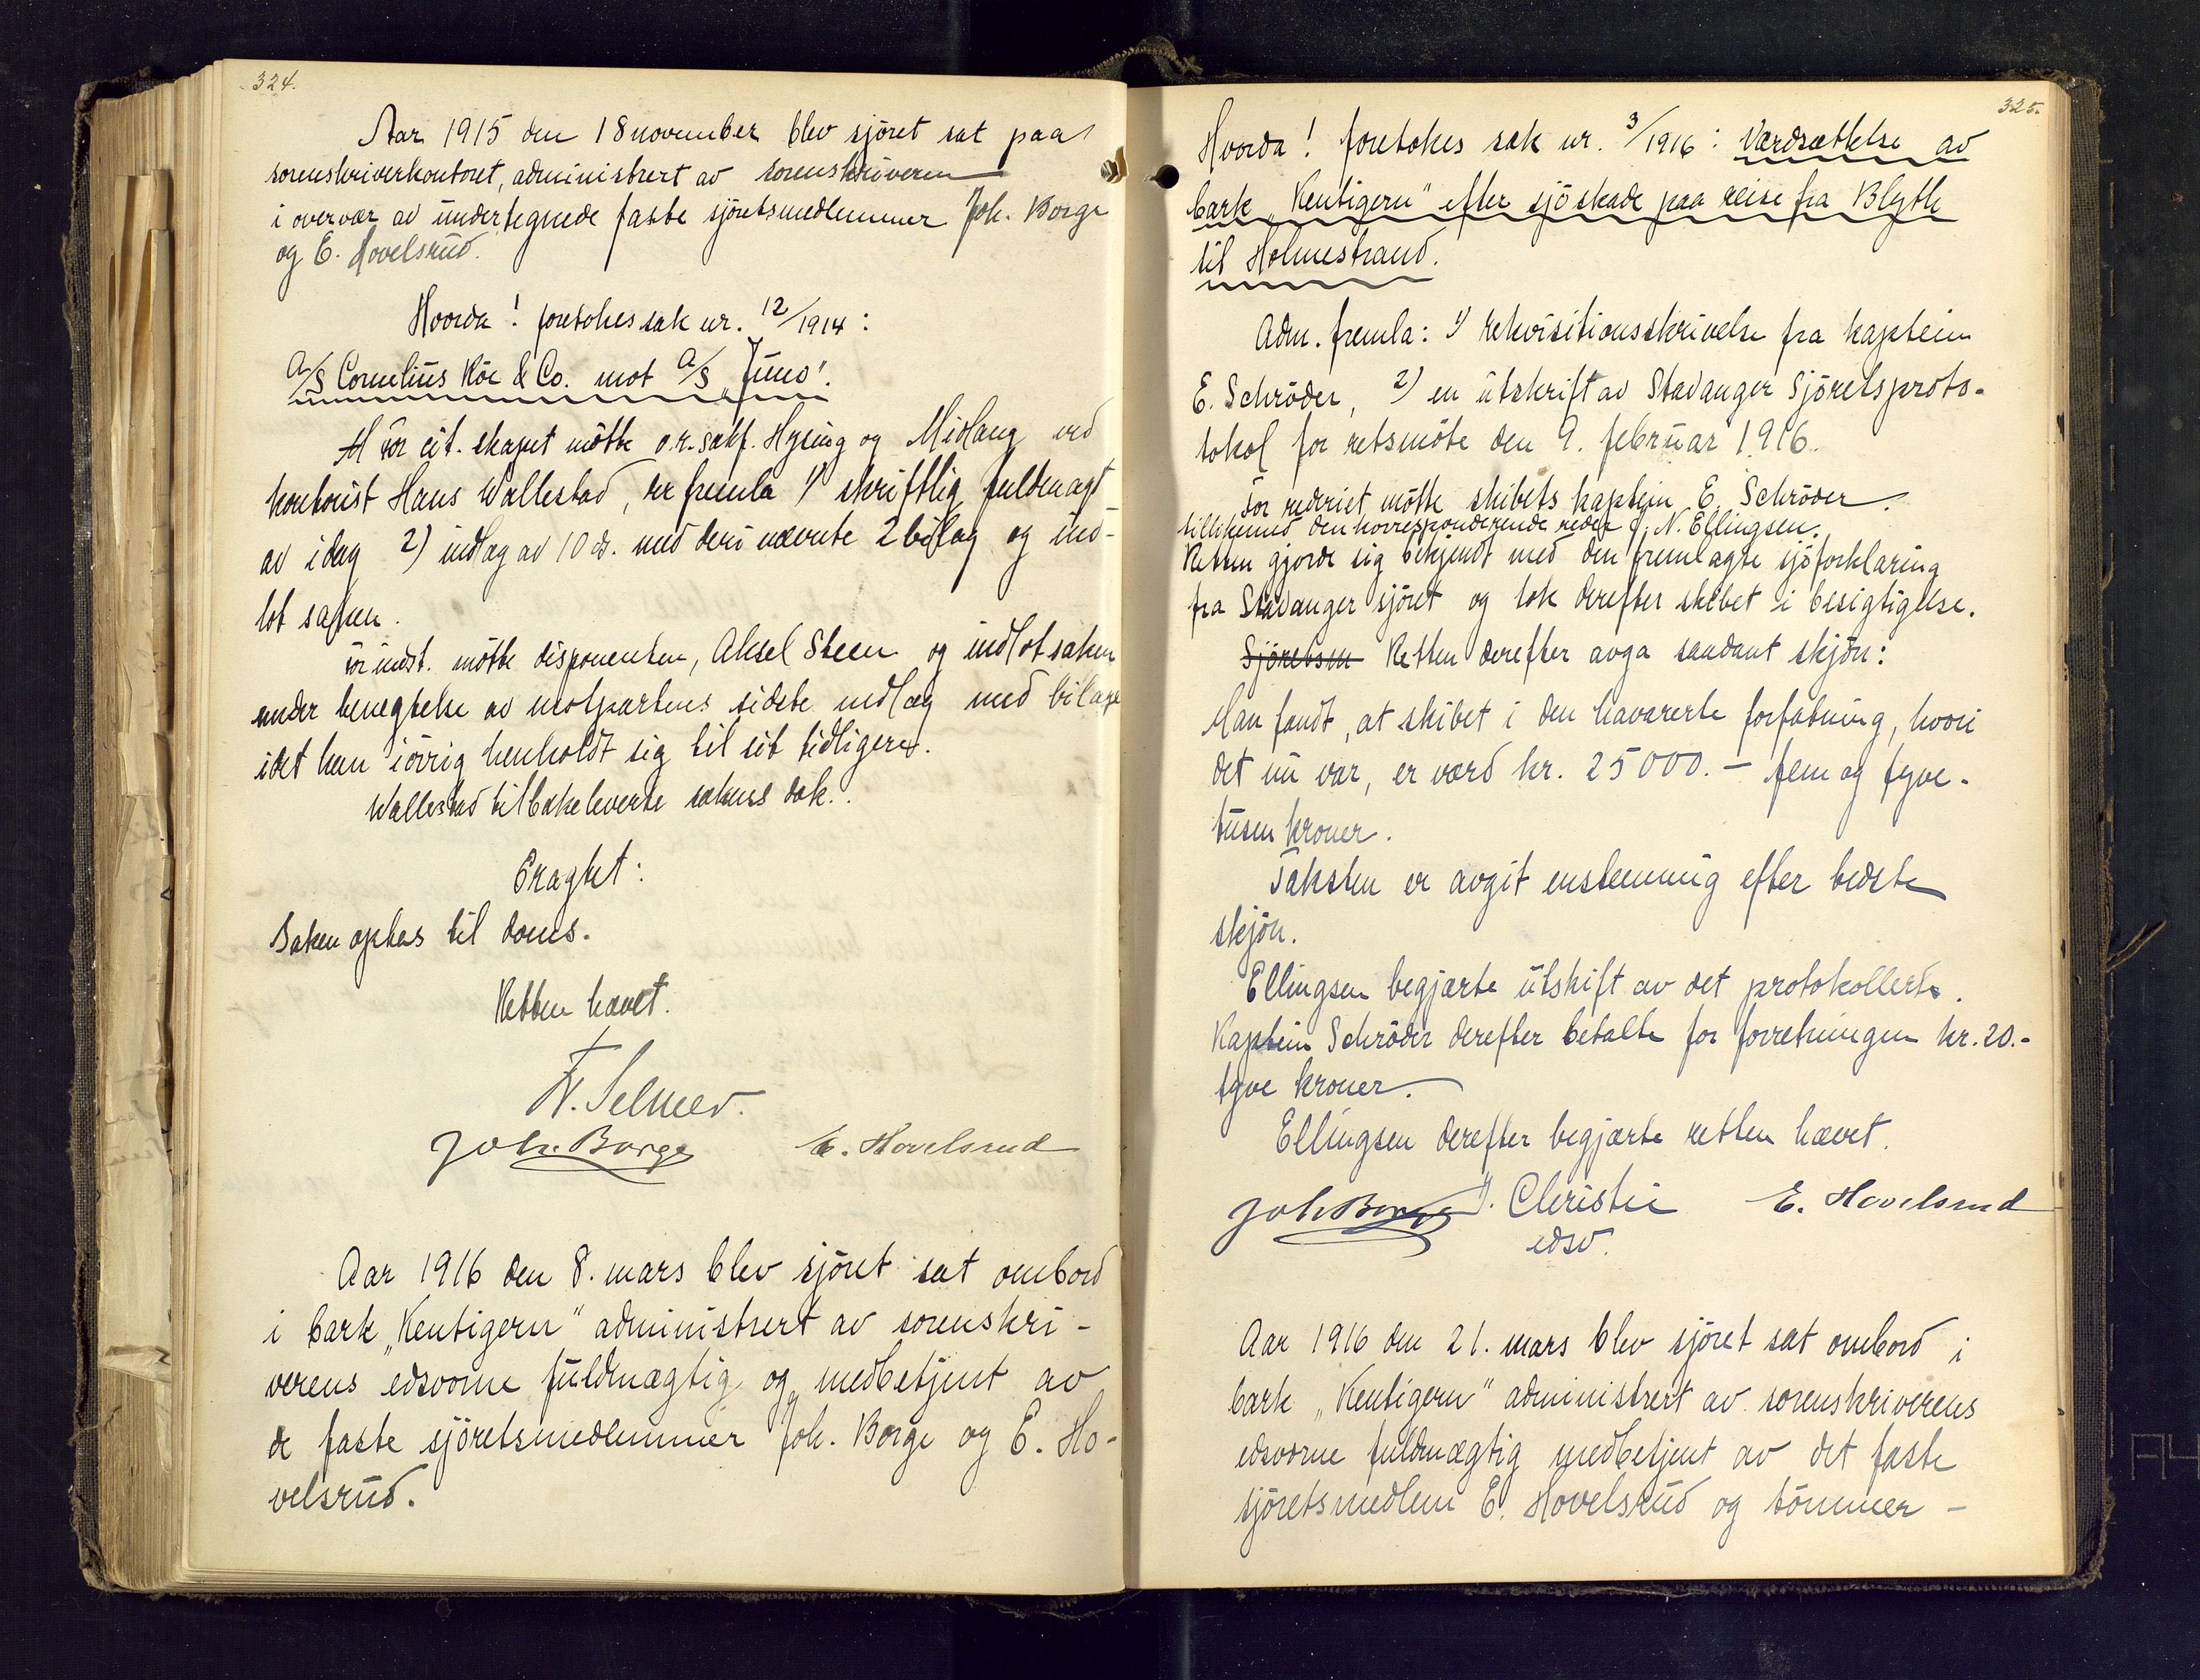 324.
Aar 1915 den 18 november blev sjöret sat paa
sorenskriverkontoret, administrert av sorenskriveren
i overvær av undertegnede faste sjöretsmedlemmer Joh. Borge
og E. Hovelsrud.
Hvorda! foretokes sak nr. 12/1914:
A/S Cornelius Röe & Co. mot A/S "Juno".
For cit. skapet mötte o.r.sakf. Hysing og Midlang ved
kontorist Hans Wallestad, der fremla 1) skriftlig fuldmagt
av idag 2) indlæg av 10 ds. med deri nævnte 2 bilag og ind-
lot saken.
For indst. mötte disponenten, Aksel Steen og indlot saken
under benegtelse av motpartens sidste indlæg med bilage
idet han iövrig henholdt sig til sit tidligere.
Wallestad tilbakeleverte sakens dok..
Eragtet:
Saken optas til doms.
Retten hævet.
Fr. Selmer.
Joh. Borge E. Hovelsrud
Aar 1916 den 8. mars blev sjöret sat ombord
i bark „Kentigern" administrert av sorenskri-
verens edsvorne fuldmægtig og medbetjent av
de faste sjöretsmedlemmer Joh. Borge og E. Ho-
velsrud.
325.
Hvorda! foretokes sak nr. 3/1916: Værdsættelse av
bark „Kentigern" efter sjöskade paa reise fra Blyth
til Holmestrand.
Adm. fremla: 1) rekvisitionsskrivelse fra kaptein
E. Schröder, 2) en utskrift av Stavanger Sjöretsproto-
tokol for retsmöte den 9. februar 1916.
For rederiet mötte skibets kaptein E. Schröder.
tillikemed den korresponderende reder J. N. Ellingsen.
Retten gjorde sig bekjendt med den fremlagte sjöforklaring
fra Stavanger sjöret og tok derefter skibet i besigtigelse.
Sjöretsen Retten derefter avga saadant skjön:
Man fandt, at skibet i den havarerte forfatning, hvori
det nu var, er værd kr. 25000.- fem og tyve-
tusen kroner.
Taksten er avgit enstemmig efter bedste
skjön.
Ellingsen begjærte utskift av det protokollerte.
Kaptein Schröder derefter betalte for forretningen kr. 20.-
tyve kroner.
Ellingsen derefter begjærte retten hævet.
Joh Borge J. Christie E. Hovelsrud
edsv.
Aar 1916 den 21. mars blev sjöret sat ombord i
bark „Kentigern" administrert av sorenskriverens
edsvorne fuldmægtig medbetjent av det faste
sjöretsmedlem E. Hovelsrud og tömmer-